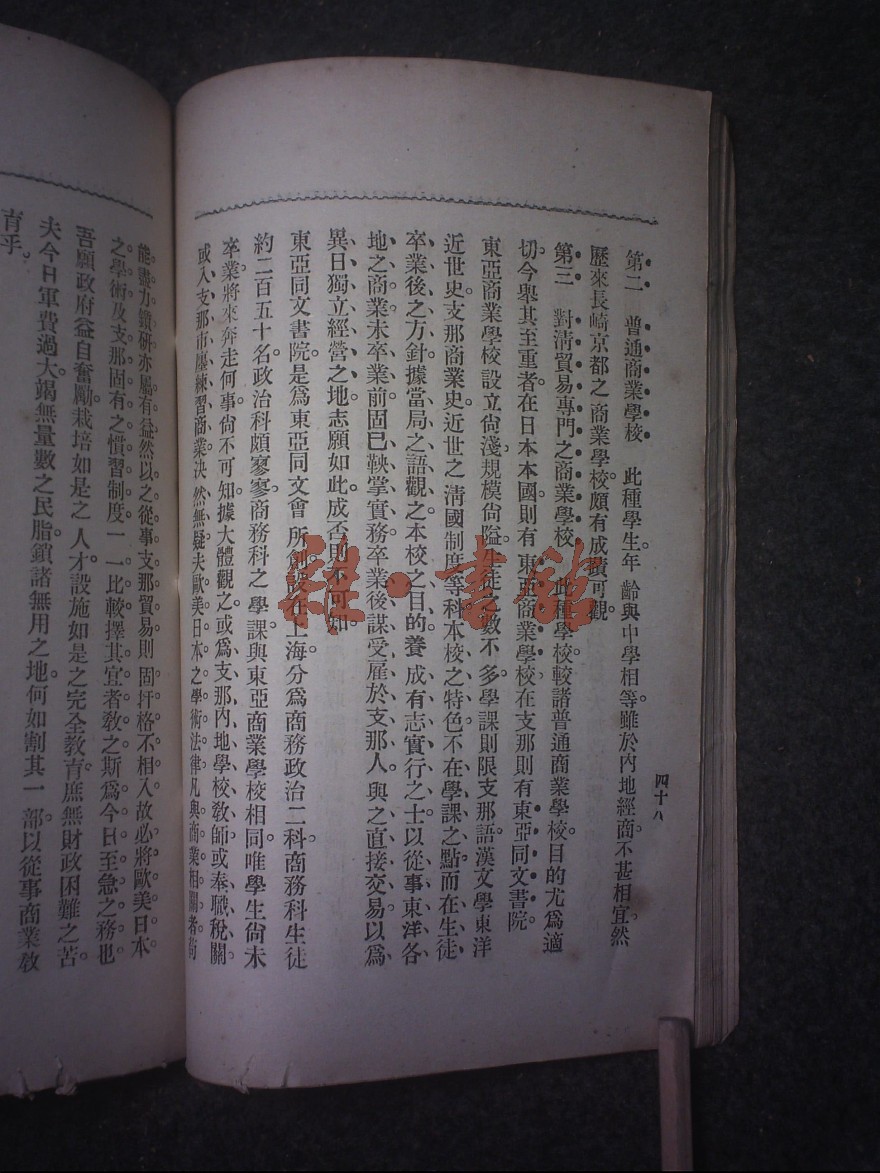 四十八
第二　普通商業學校　此種學生年齡與中學相等。雖於內地經商不甚相宜。然
歷來長崎京都之商業學校。頗有成蹟可觀。
第三　對淸貿易專門之商業學校　此種學校。較諸普通商業學校。目的尤爲適
切。今舉其至重者。在日本本國。則有東亞商業學校。在支那則有東亞同文書院。
東亞商業學校。設立尙淺。規模尙隘。生徒之數不多。學課則限支那語漢文學東洋
近世史支那商業史。近世之淸國制度等科。本校之特色。不在學課之點。而在生徒
卒業後之方針。據當局之語觀之。本校之目的。養成有志實行之士。以從事東洋各
地之商業。未卒業前。固已鞅掌實務。卒業後謀受雇於支那人。與之直接交易。以爲
異日獨立經營之地。志願如此。成否則不可知
東亞同文書院。是爲東亞同文會所創。設在上海。分爲商務政治二科。商務科生徒
約二百五十名。政治科頗寥寥。商務科之學課。與東亞商業學校相同。唯學生尙未
卒業。將來奔走何事。尙不可知。據大體觀之。或爲支那內地學校敎師。或奉職稅關。
或入支那市廛。練習商業。決然無疑。夫歐美日本之學術法律。凡與商業相關者。苟
能盡力鑽研。亦屬有益。然以之從事支那貿易。則固扞格不相入。故必將歐美日本
之學術。及支那固有之慣習制度。一一比較。擇其宜者敎之。斯爲今日至急之務也。
吾願政府益自奮勵。栽培如是之人才。設施如是之完全敎育。庶無財政困難之苦
夫今日軍費過大。竭無量數之民脂。鎖諸無用之地。何如割其一部。以從事商業敎
育乎。
雜·書館